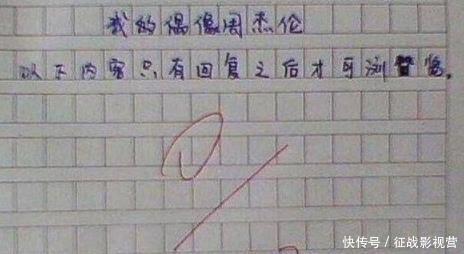 我的偶像周杰伦
以下内容只有回复之后才可浏览。
快传号／征战影视营